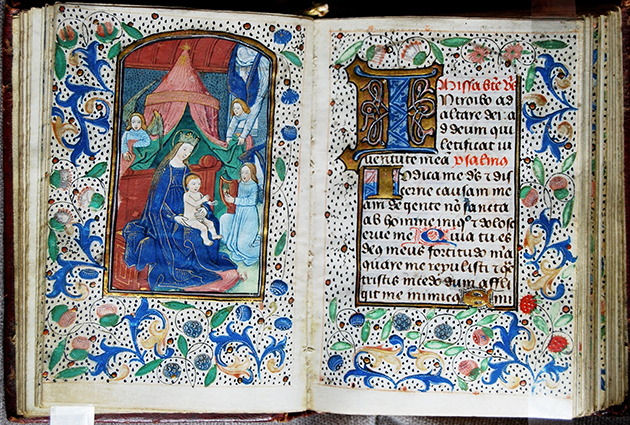 Missa bte
Introibo ad
altare dei a
d deum qui
letificat iu
ventute mea
Iudica me ds ꞇ dis
cerne causam me
am de gente nō sancta
ab homine iniqº ꞇ doloso
erue me Quia tu es
deꝰ meus fortitudo mea
quare me repulisti ꞇ
tristis incedo dum affli
git me inimicꝰ